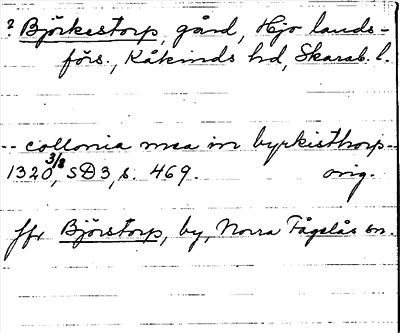 ? Björkestorp, gård, Hjo lands-
förs., Kåkinds hd, Skarab. l.
-- collonia mea in byrkisthorp --
1320 3/8, SD3, s. 469. orig.
jfr Björstorp, by, Norra Fågelås sn.